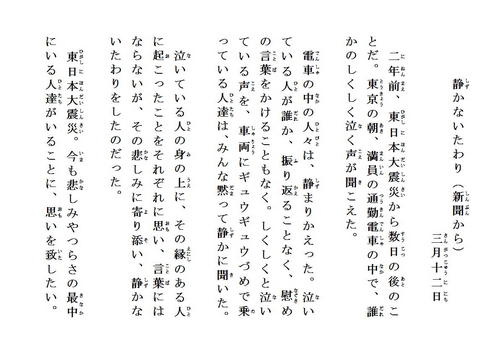 静かないたわり（新聞から）
三月十二日
二年前、東日本大震災から数日の後のこ
とだ。東京の朝、満員の通勤電車の中で、誰
かのしくしく泣く声が聞こえた。
電車の中の人々は、静まりかえった。泣い
ている人が誰か、振り返ることなく、慰め
の言葉をかけることもなく。しくしくと泣い
ている声を、車両にギュウギュウづめで乗
っている人達は、みんな黙って静かに聞いた。
泣いている人の身の上に、その縁のある人
に起こったことをそれぞれに思い、言葉には
ならないが、その悲しみに寄り添い、静かな
いたわりをしたのだった。
東日本大震災。今も悲しみやつらさの最中
にいる人達がいることに、思いを致したい。